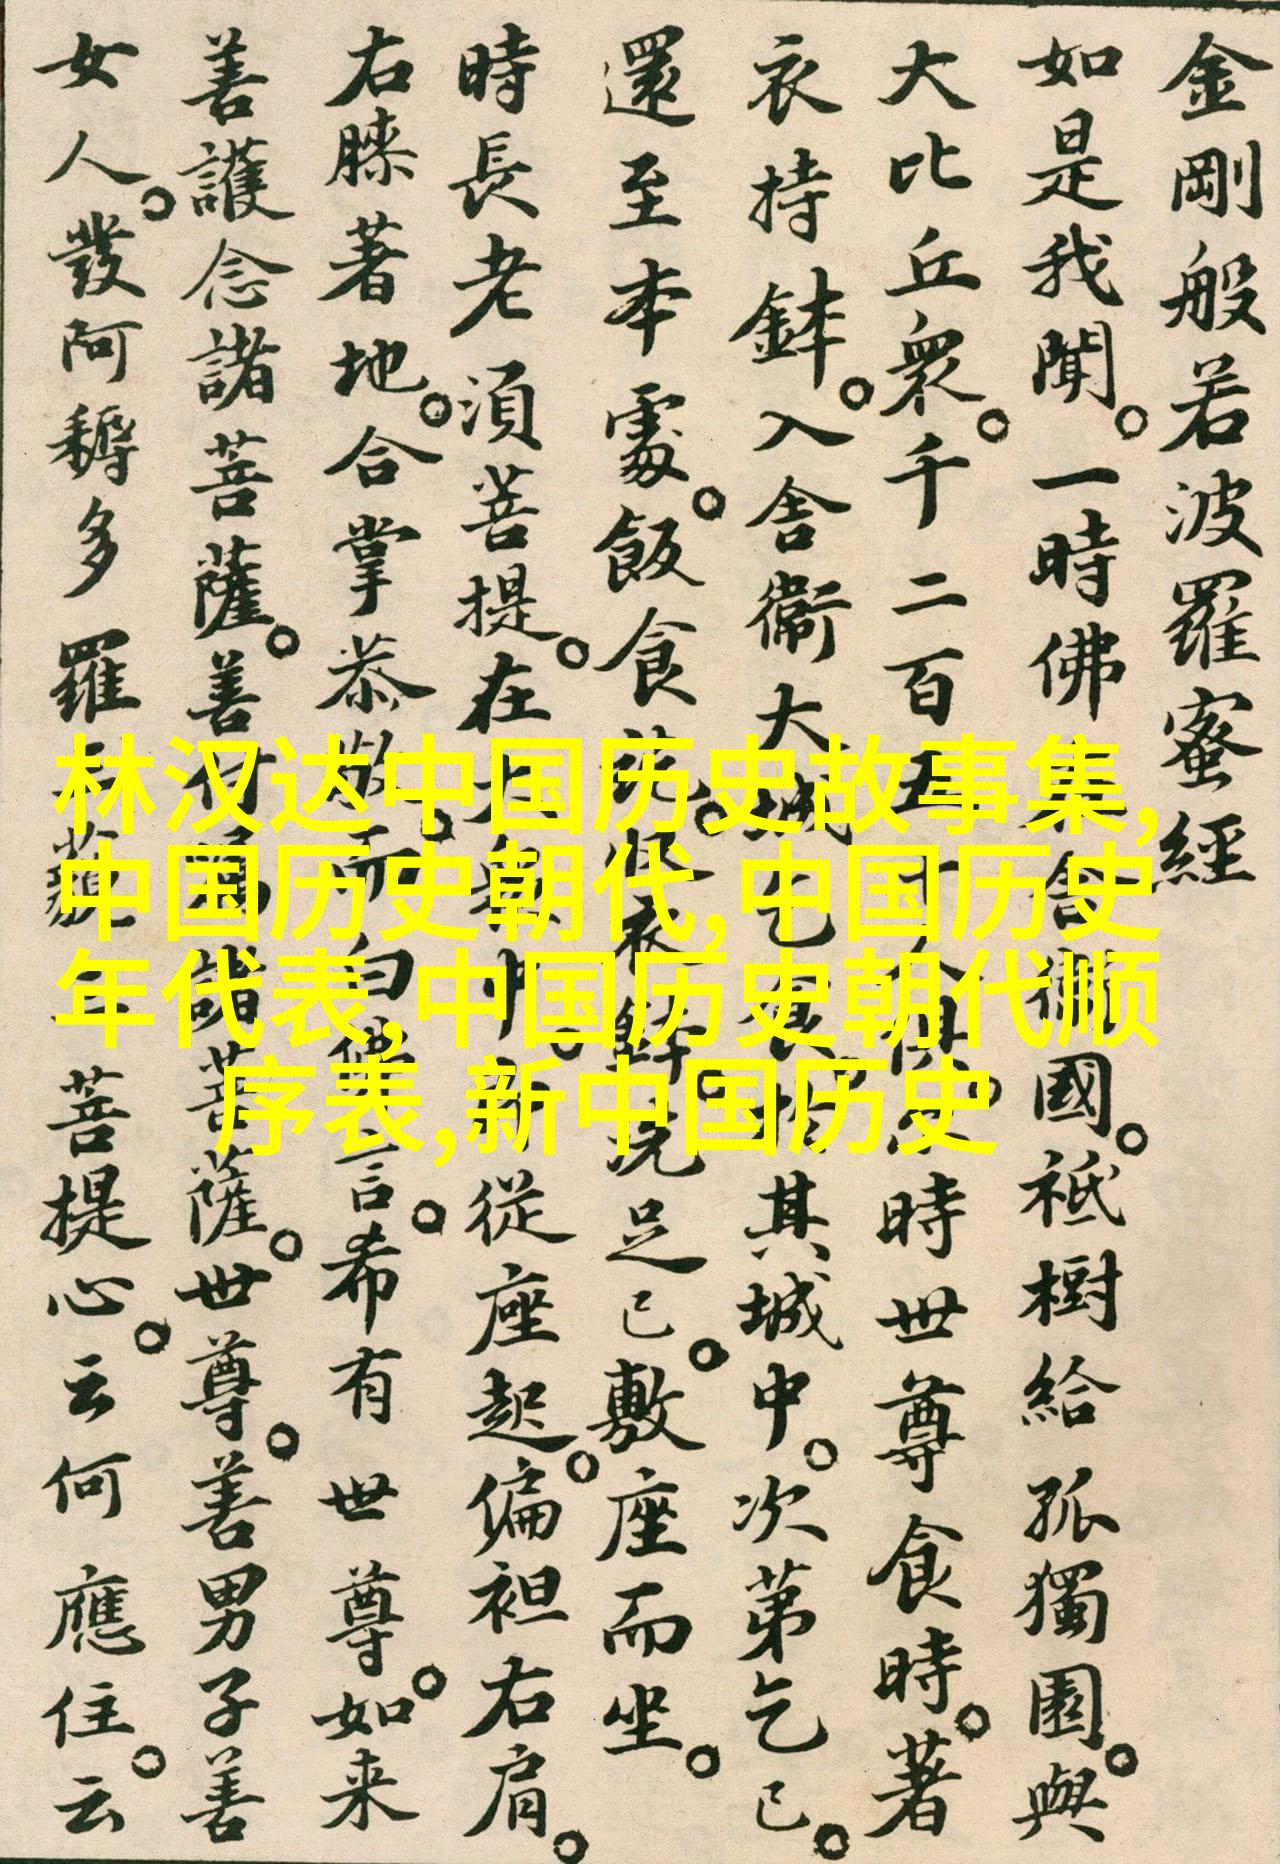 金剛般若波羅蜜經
如是我聞。一時佛在舍衛國。祇樹給孤獨園。與
大比丘衆。千二百五十人俱。爾時世尊食時。著
衣持鉢。入舍衞大城乞食。於其城中。次第乞已。
還至本處。飯食訖。收衣鉢。洗足已。敷座而坐。
時長老湏菩提。在大衆中。即從座起。偏袒右肩。
右膝著地。合掌恭敬。而白佛言。希有世尊。如来
善護念諸菩薩。善付囑諸菩薩。世尊。善男子善
女人。發阿耨多羅三藐三菩提心。云何應住。云
林汉达中国历史故事集,
中国历史朝代,中国历史
年代表,中国历史朝代顺
序表,新中国历史